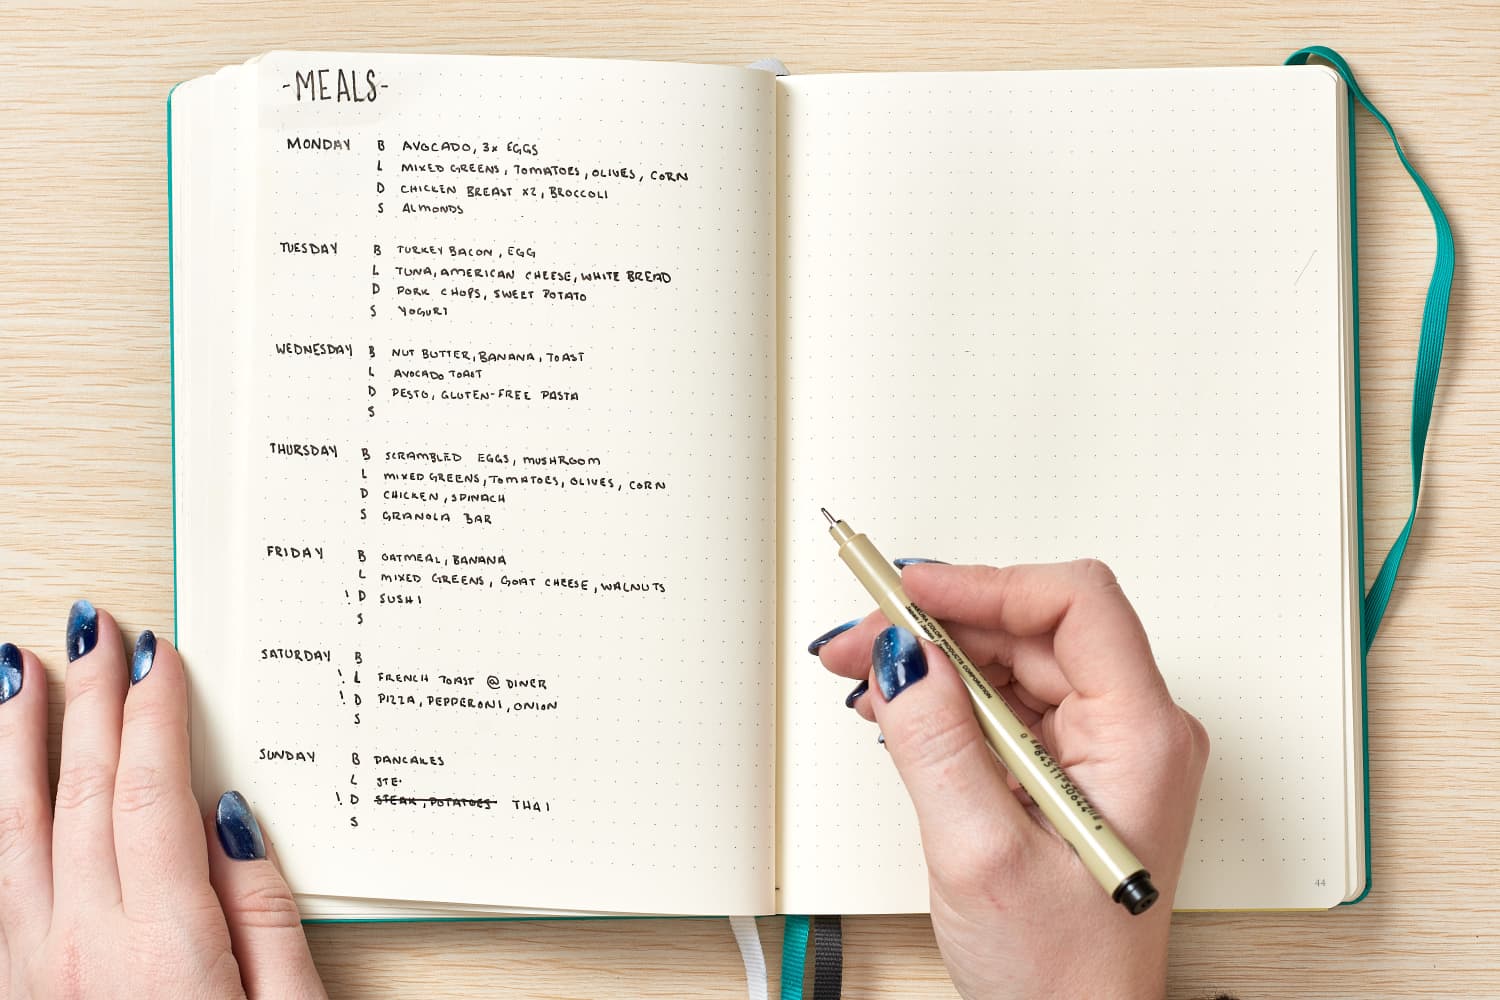 -MEALS-
MONDAY B AVOCADO, 3x EGGS
L MIXED GREENS, TOMATOES, OLIVES, CORN
D CHICKEN BREAST x2, BROCCOLI
S ALMONDS
TUESDAY B TURKEY BACON, EGG
L TUNA, AMERICAN CHEESE, WHITE BREAD
D PORK CHOPS, SWEET POTATO
S YOGURT
WEDNESDAY B NUT BUTTER, BANANA, TOAST
L AVOCADO TOAST
D PESTO, GLUTEN-FREE PASTA
S
THURSDAY B SCRAMBLED EGGS, MUSHROOM
L MIXED GREENS, TOMATOES, OLIVES, CORN
D CHICKEN, SPINACH
S GRANOLA BAR
FRIDAY B OATMEAL, BANANA
L MIXED GREENS, GOAT CHEESE, WALNUTS
! D SUSHI
S
SATURDAY B
! L FRENCH TOAST @ DINER
! D PIZZA, PEPPERONI, ONION
S
SUNDAY B PANCAKES
L
! D STEAK, POTATOES THAI
S
SAKURA COLOR PRODUCTS CORPORATION
44